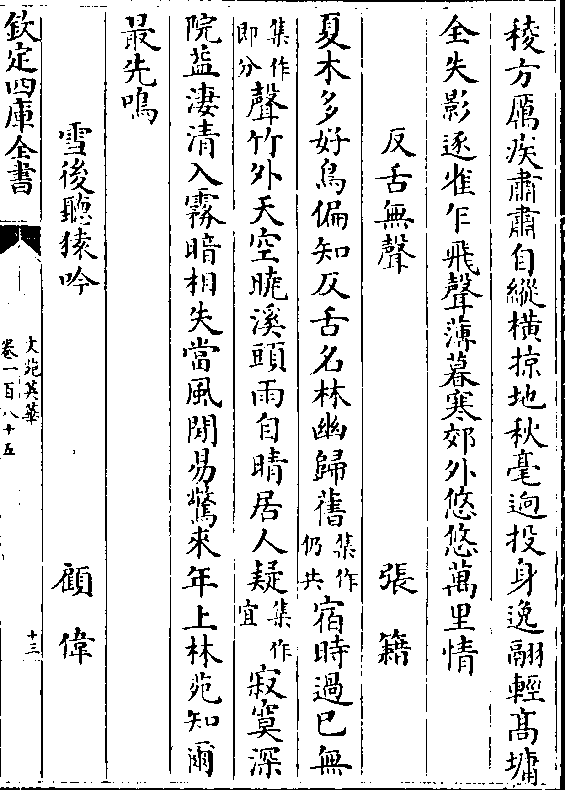 稜方厲疾肅肅自縱橫掠地秋毫逈投身逸翮輕髙墉
全失影逐雀乍飛聲薄暮寒郊外悠悠萬里情
反舌無聲 張籍
夏木多好鳥偏知反舌名林幽歸舊集作仍共宿時過已無
集作即分聲竹外天空曉溪頭雨自晴居人疑集作宜寂寞深
院益淒清入霧暗相失當風閒易驚來年上林苑知爾
最先鳴
雪後聽猿吟 顧偉
欽定四庫全書
文苑英華
卷一百八十五
十三